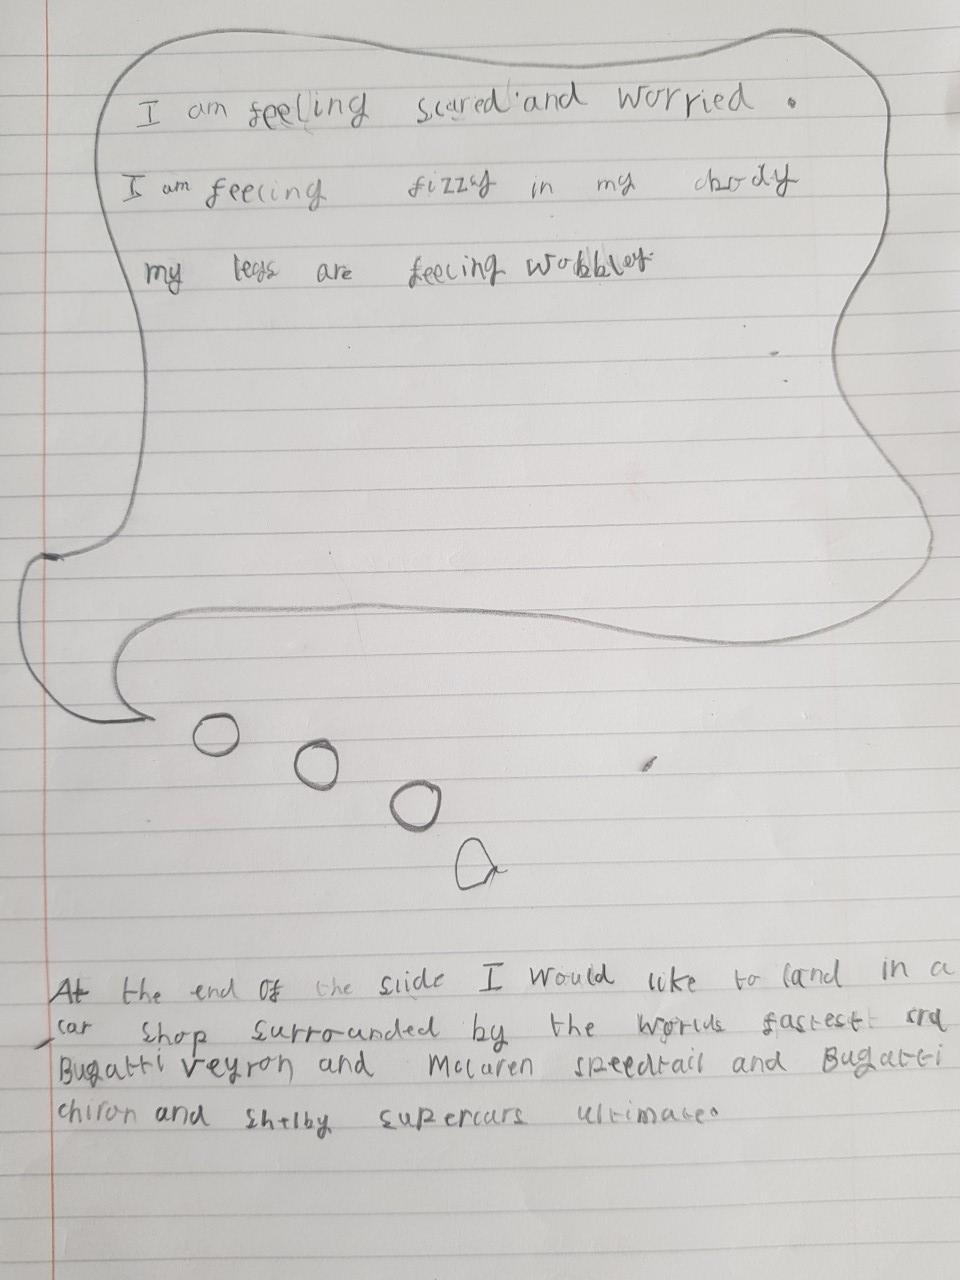 I am feeling scared and worried.
I am feeling fizzy in my body
my legs are feeling wobbley.
At the end of the slide I would like to land in a
car shop surrounded by the worlds fastest
Bugatti veyron and Mclaren speedtail and Bugatti
chiron and Shelby supercars ultimate.